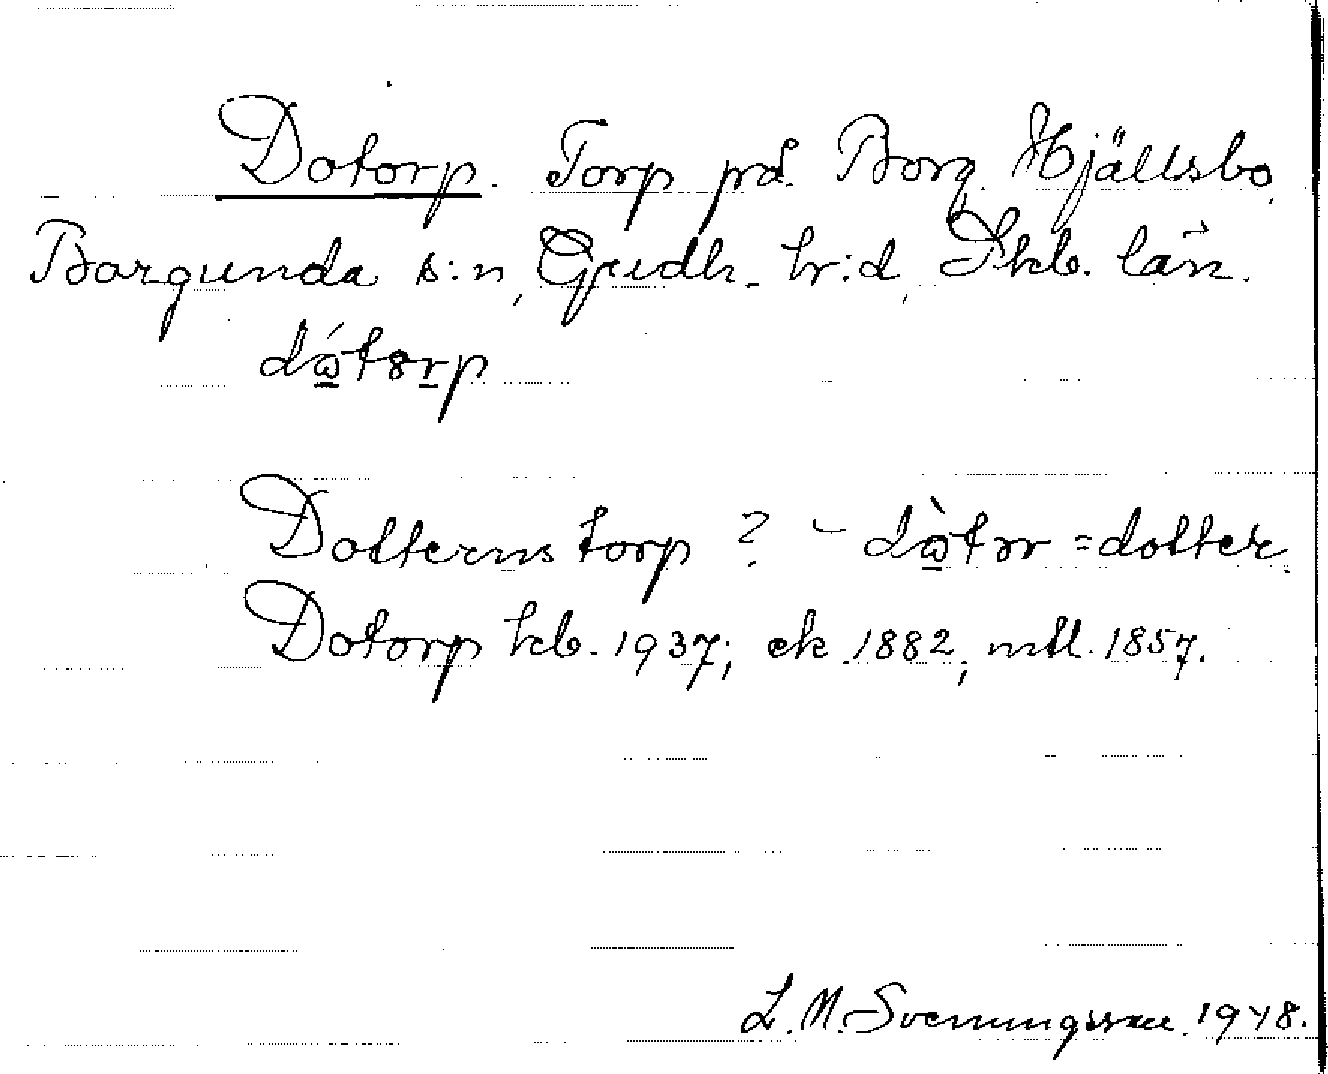 Dotorp. Torp på Borg. Hjällsbo,
Borgunda s:n, Gudh. hr:d, Skb. län.
dώtorp
Dotterns torp? – dὼtər = dotter.
Dotorp kb. 1937; ek. 1882, mtl. 1857.
L. M. Svenungsson. 1948.